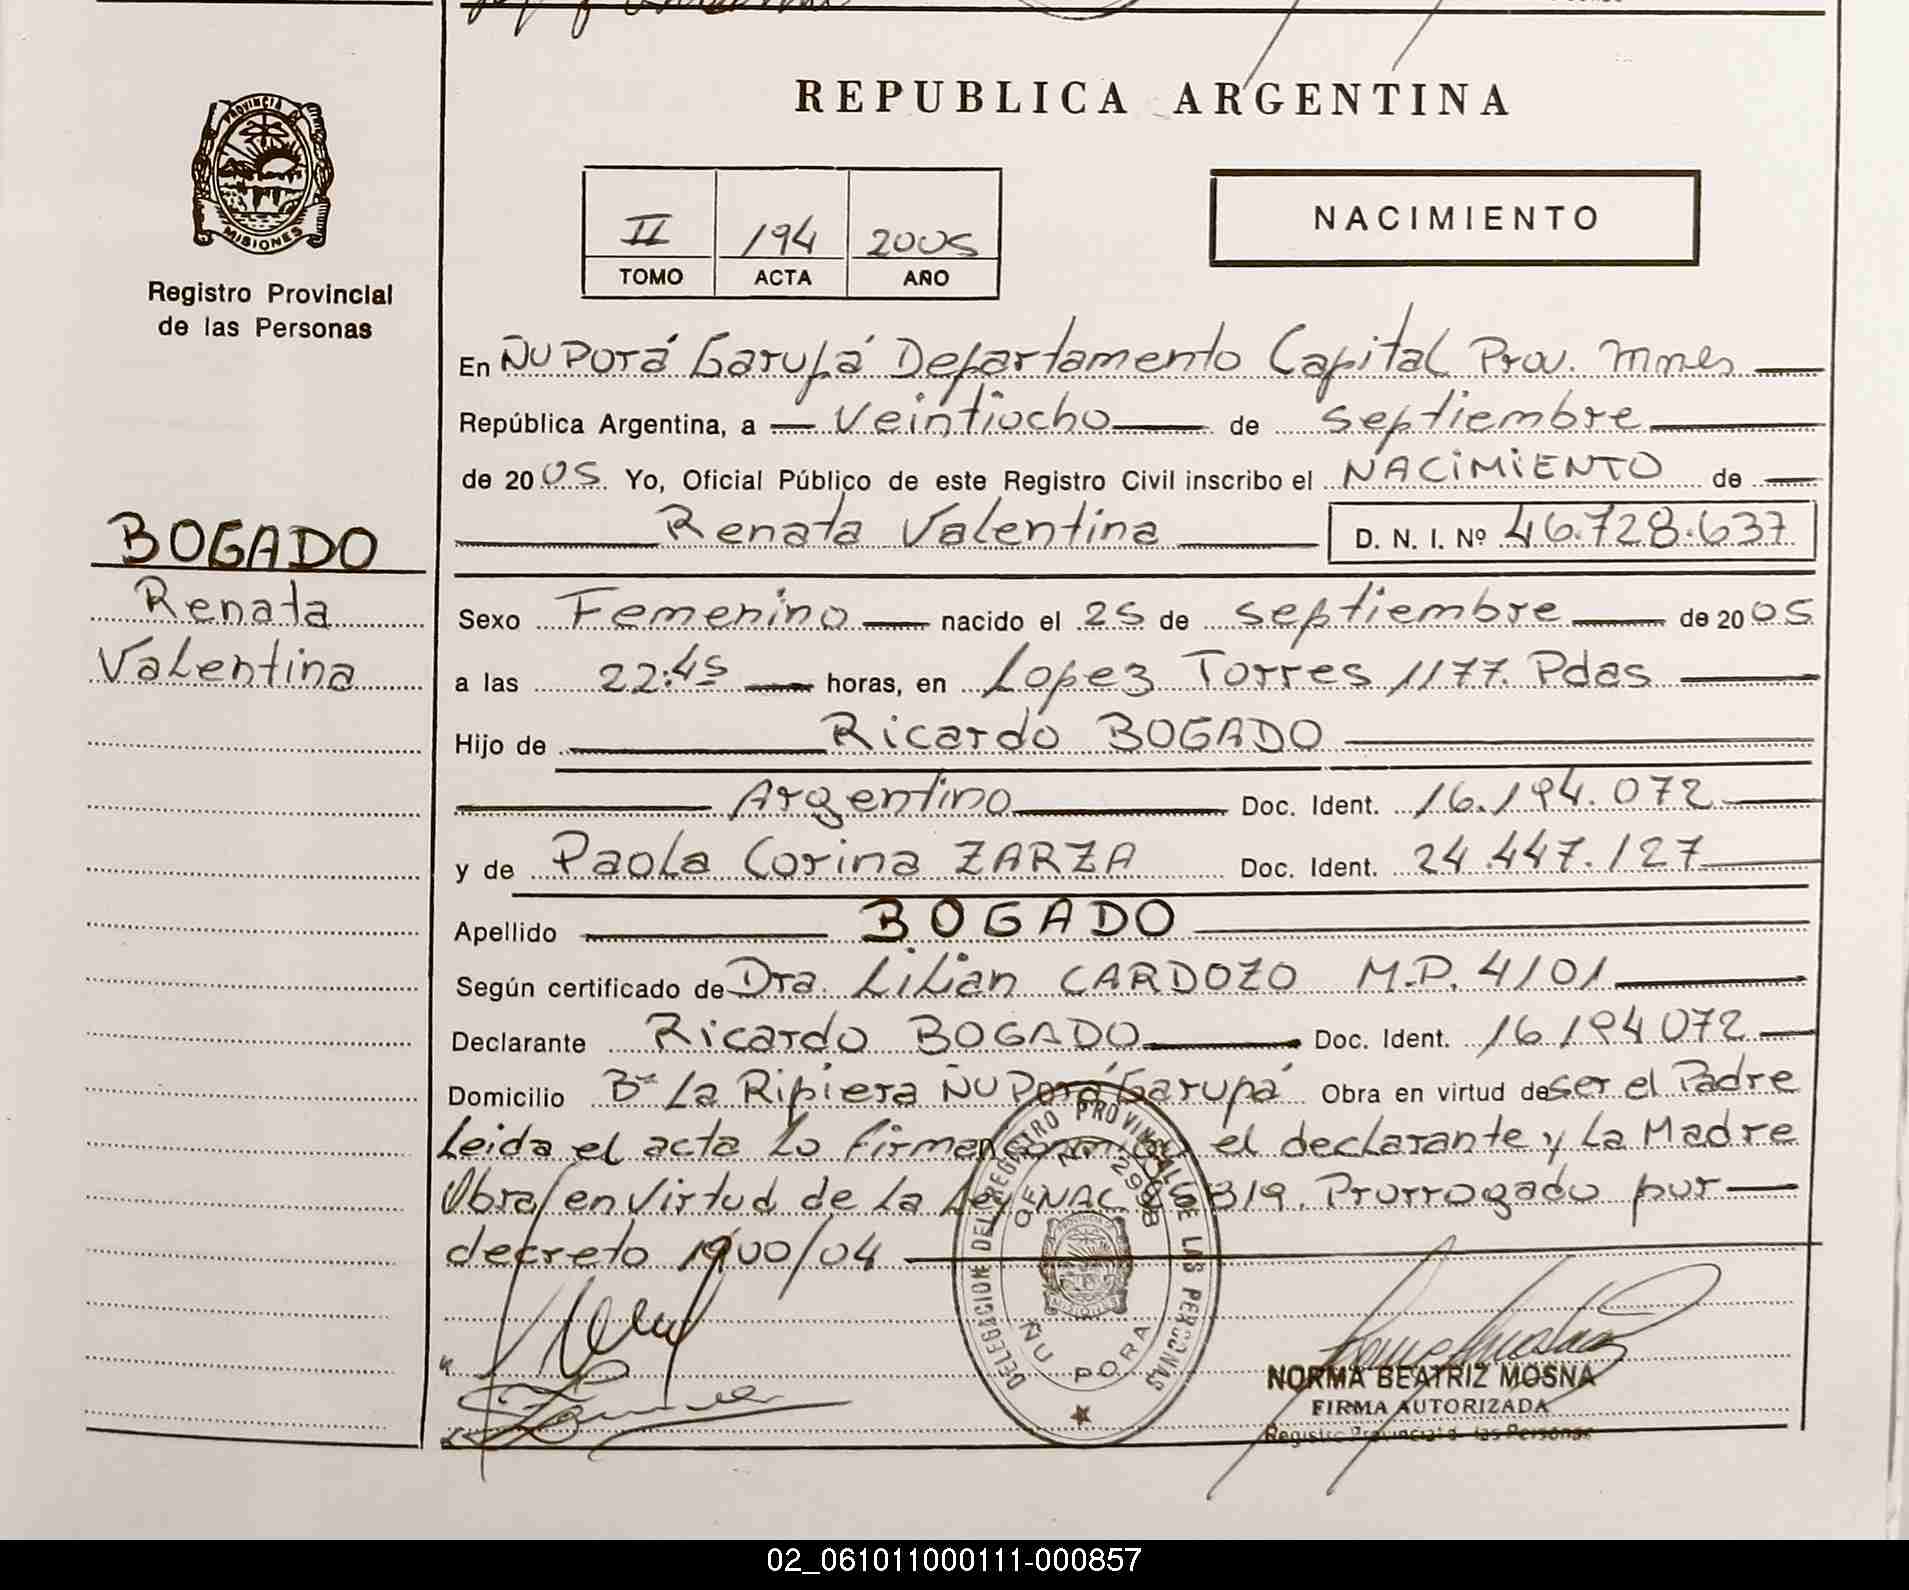 REPUBLICA ARGENTINA
PROVINCIA DE
MISIONES
Registro Provincial
de las Personas
II 194 2005
TOMO ACTA AÑO
NACIMIENTO
BOGADO
Renata
Valentina
En Ñu Porá Garupá Departamento Capital Prov. Mnes
República Argentina, a veintiocho de septiembre
de 2005. Yo, Oficial Público de este Registro Civil inscribo el NACIMIENTO de
Renata Valentina D. N. I. Nº 46.728.637
Sexo Femenino nacido el 25 de septiembre de 2005
a las 22:45 horas, en Lopez Torres 1177. Pdas
Hijo de Ricardo BOGADO
Argentino Doc. Ident. 16.194.072
y de Paola Corina ZARZA Doc. Ident. 24.447.127
Apellido BOGADO
Según certificado de Dra. Lilian CARDOZO M.P. 4101
Declarante Ricardo BOGADO Doc. Ident. 16194072
Domicilio Bº La Ripiera Ñu Porá Garupá Obra en virtud de ser el Padre
Leida el acta lo firman el declarante y la Madre
Obra en virtud de la Ley NAC. Prorrogado por
decreto 1900/04
DELEGACION DEL REGISTRO PROVINCIAL DE LAS PERSONAS
ÑU PORA
MISIONES
NORMA BEATRIZ MOSNA
FIRMA AUTORIZADA
Registro Provincial de las Personas
02_061011000111-000857